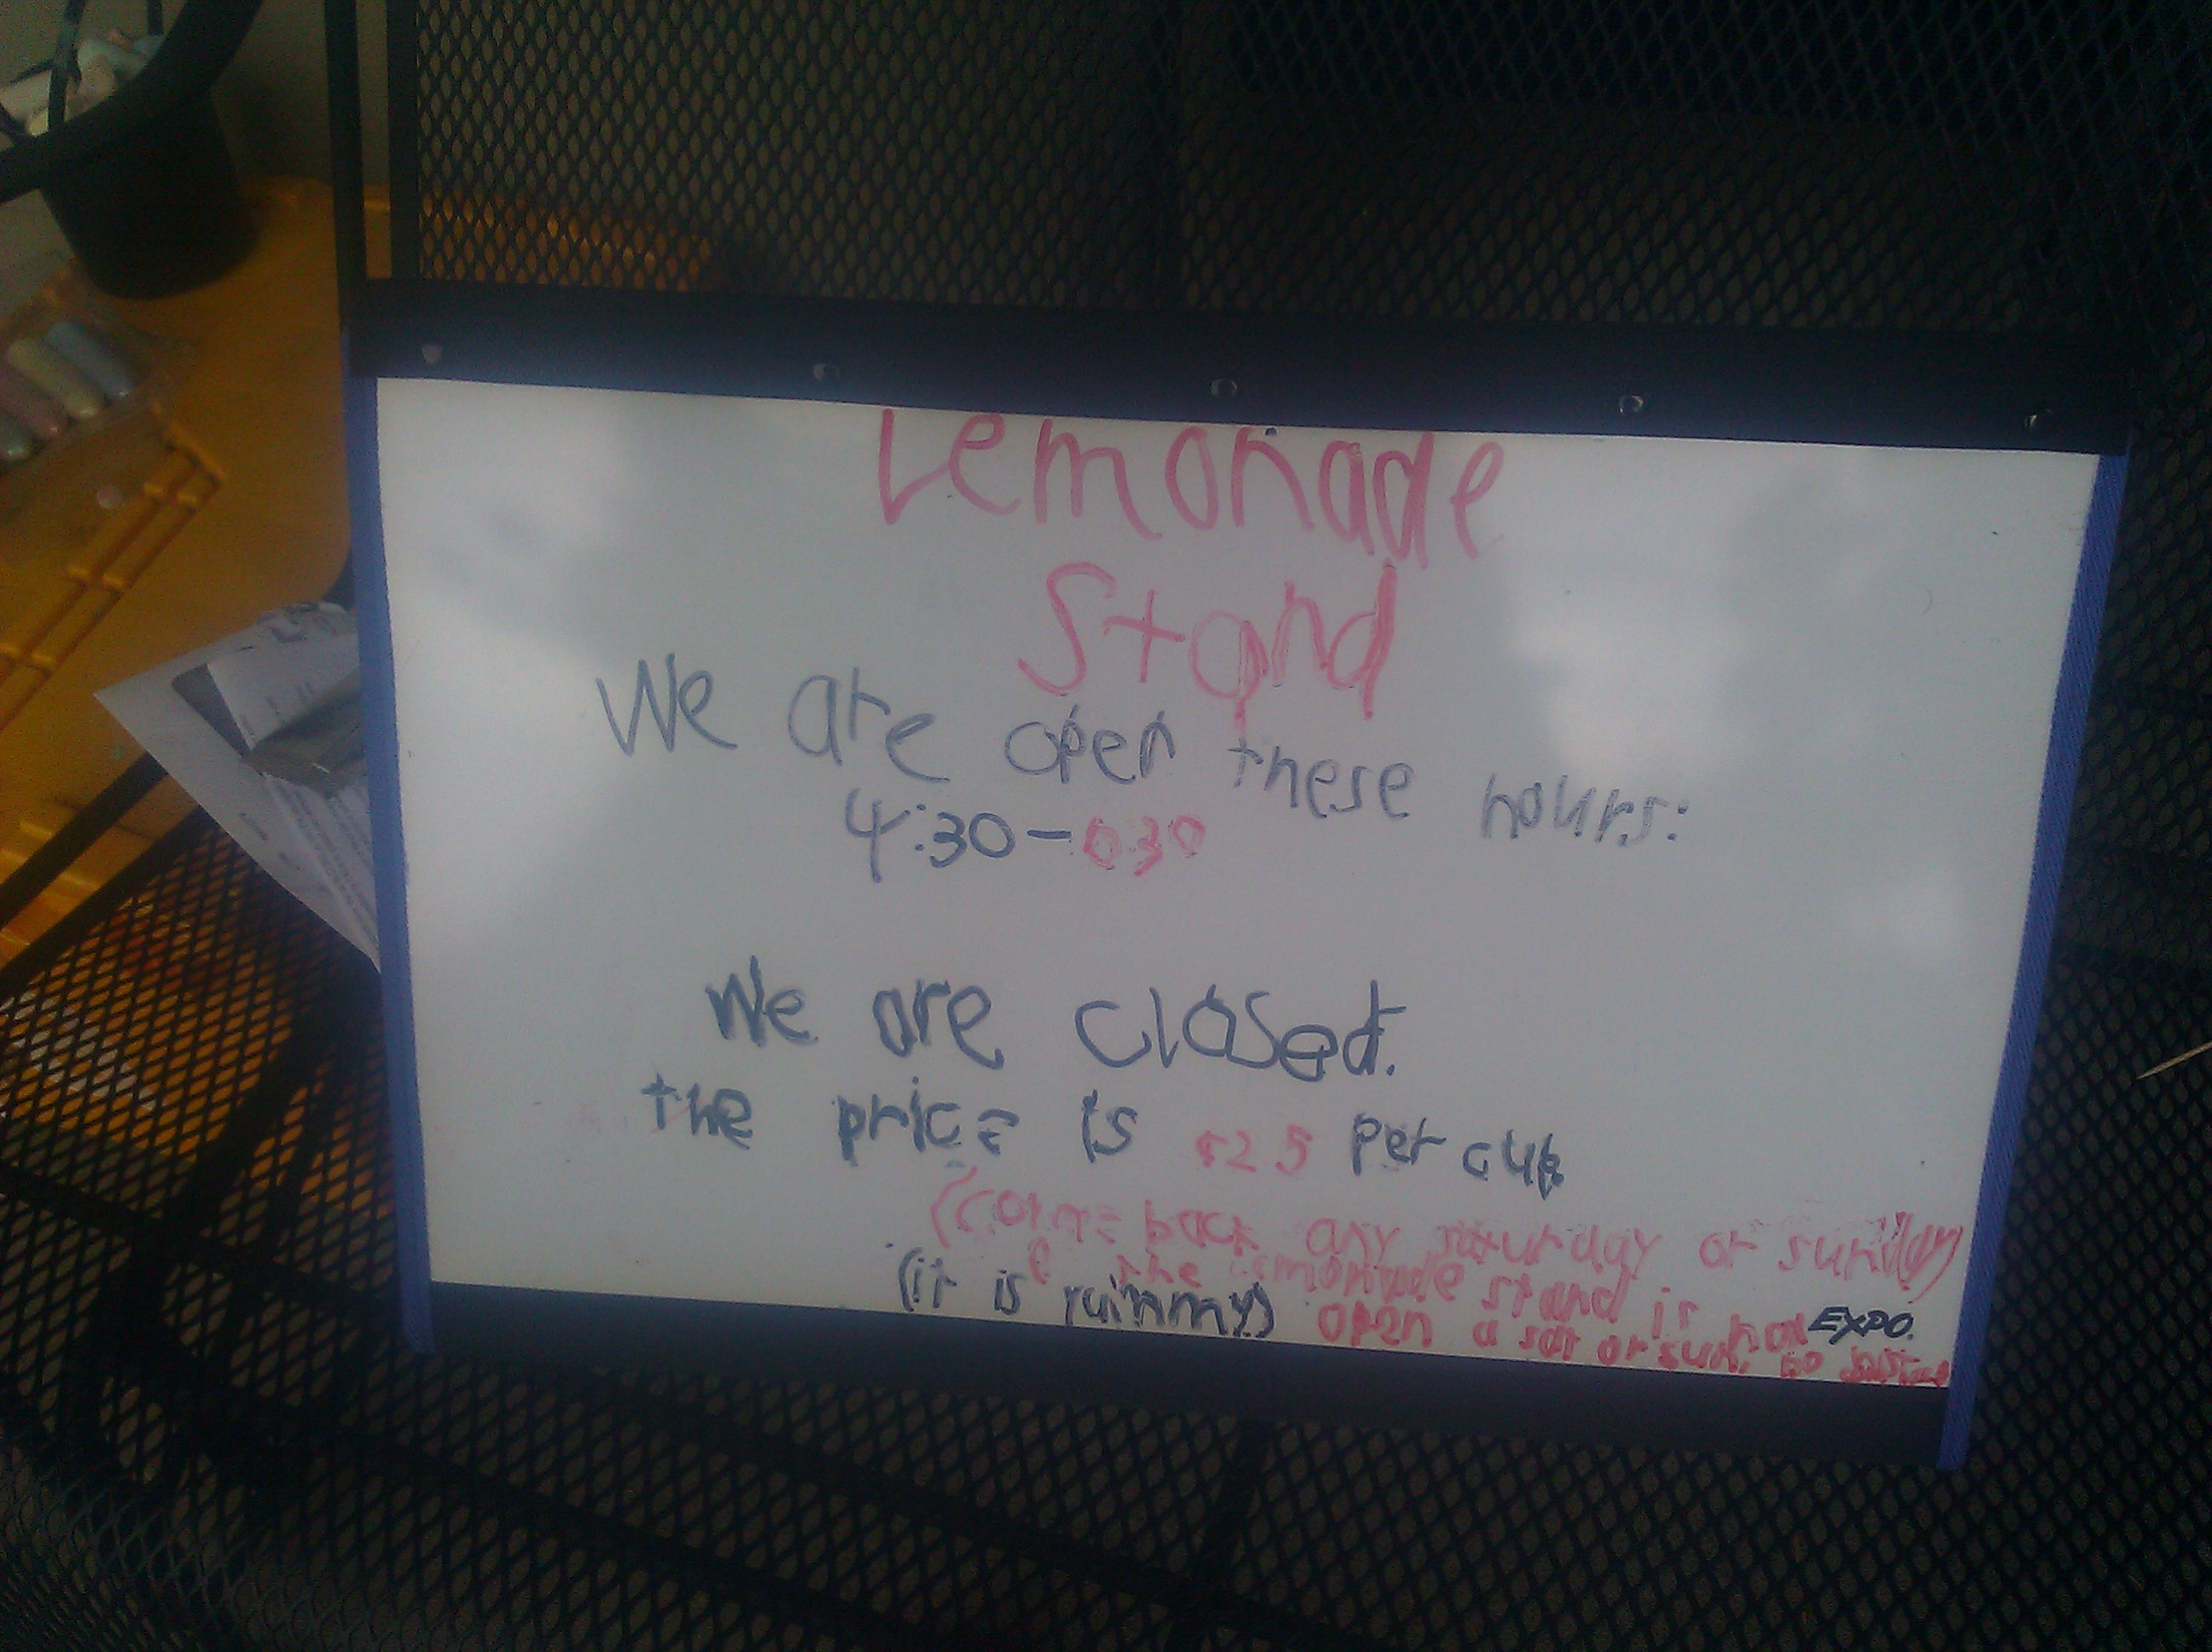 Lemonade
Stand
We are open these hours:
4:30-6:30
We are closed.
the price is ¢25 per cup
(come back any saturday or sunday)
(it is yuimmy) the lemonade stand is not
open a sat or sun. so
EXPO